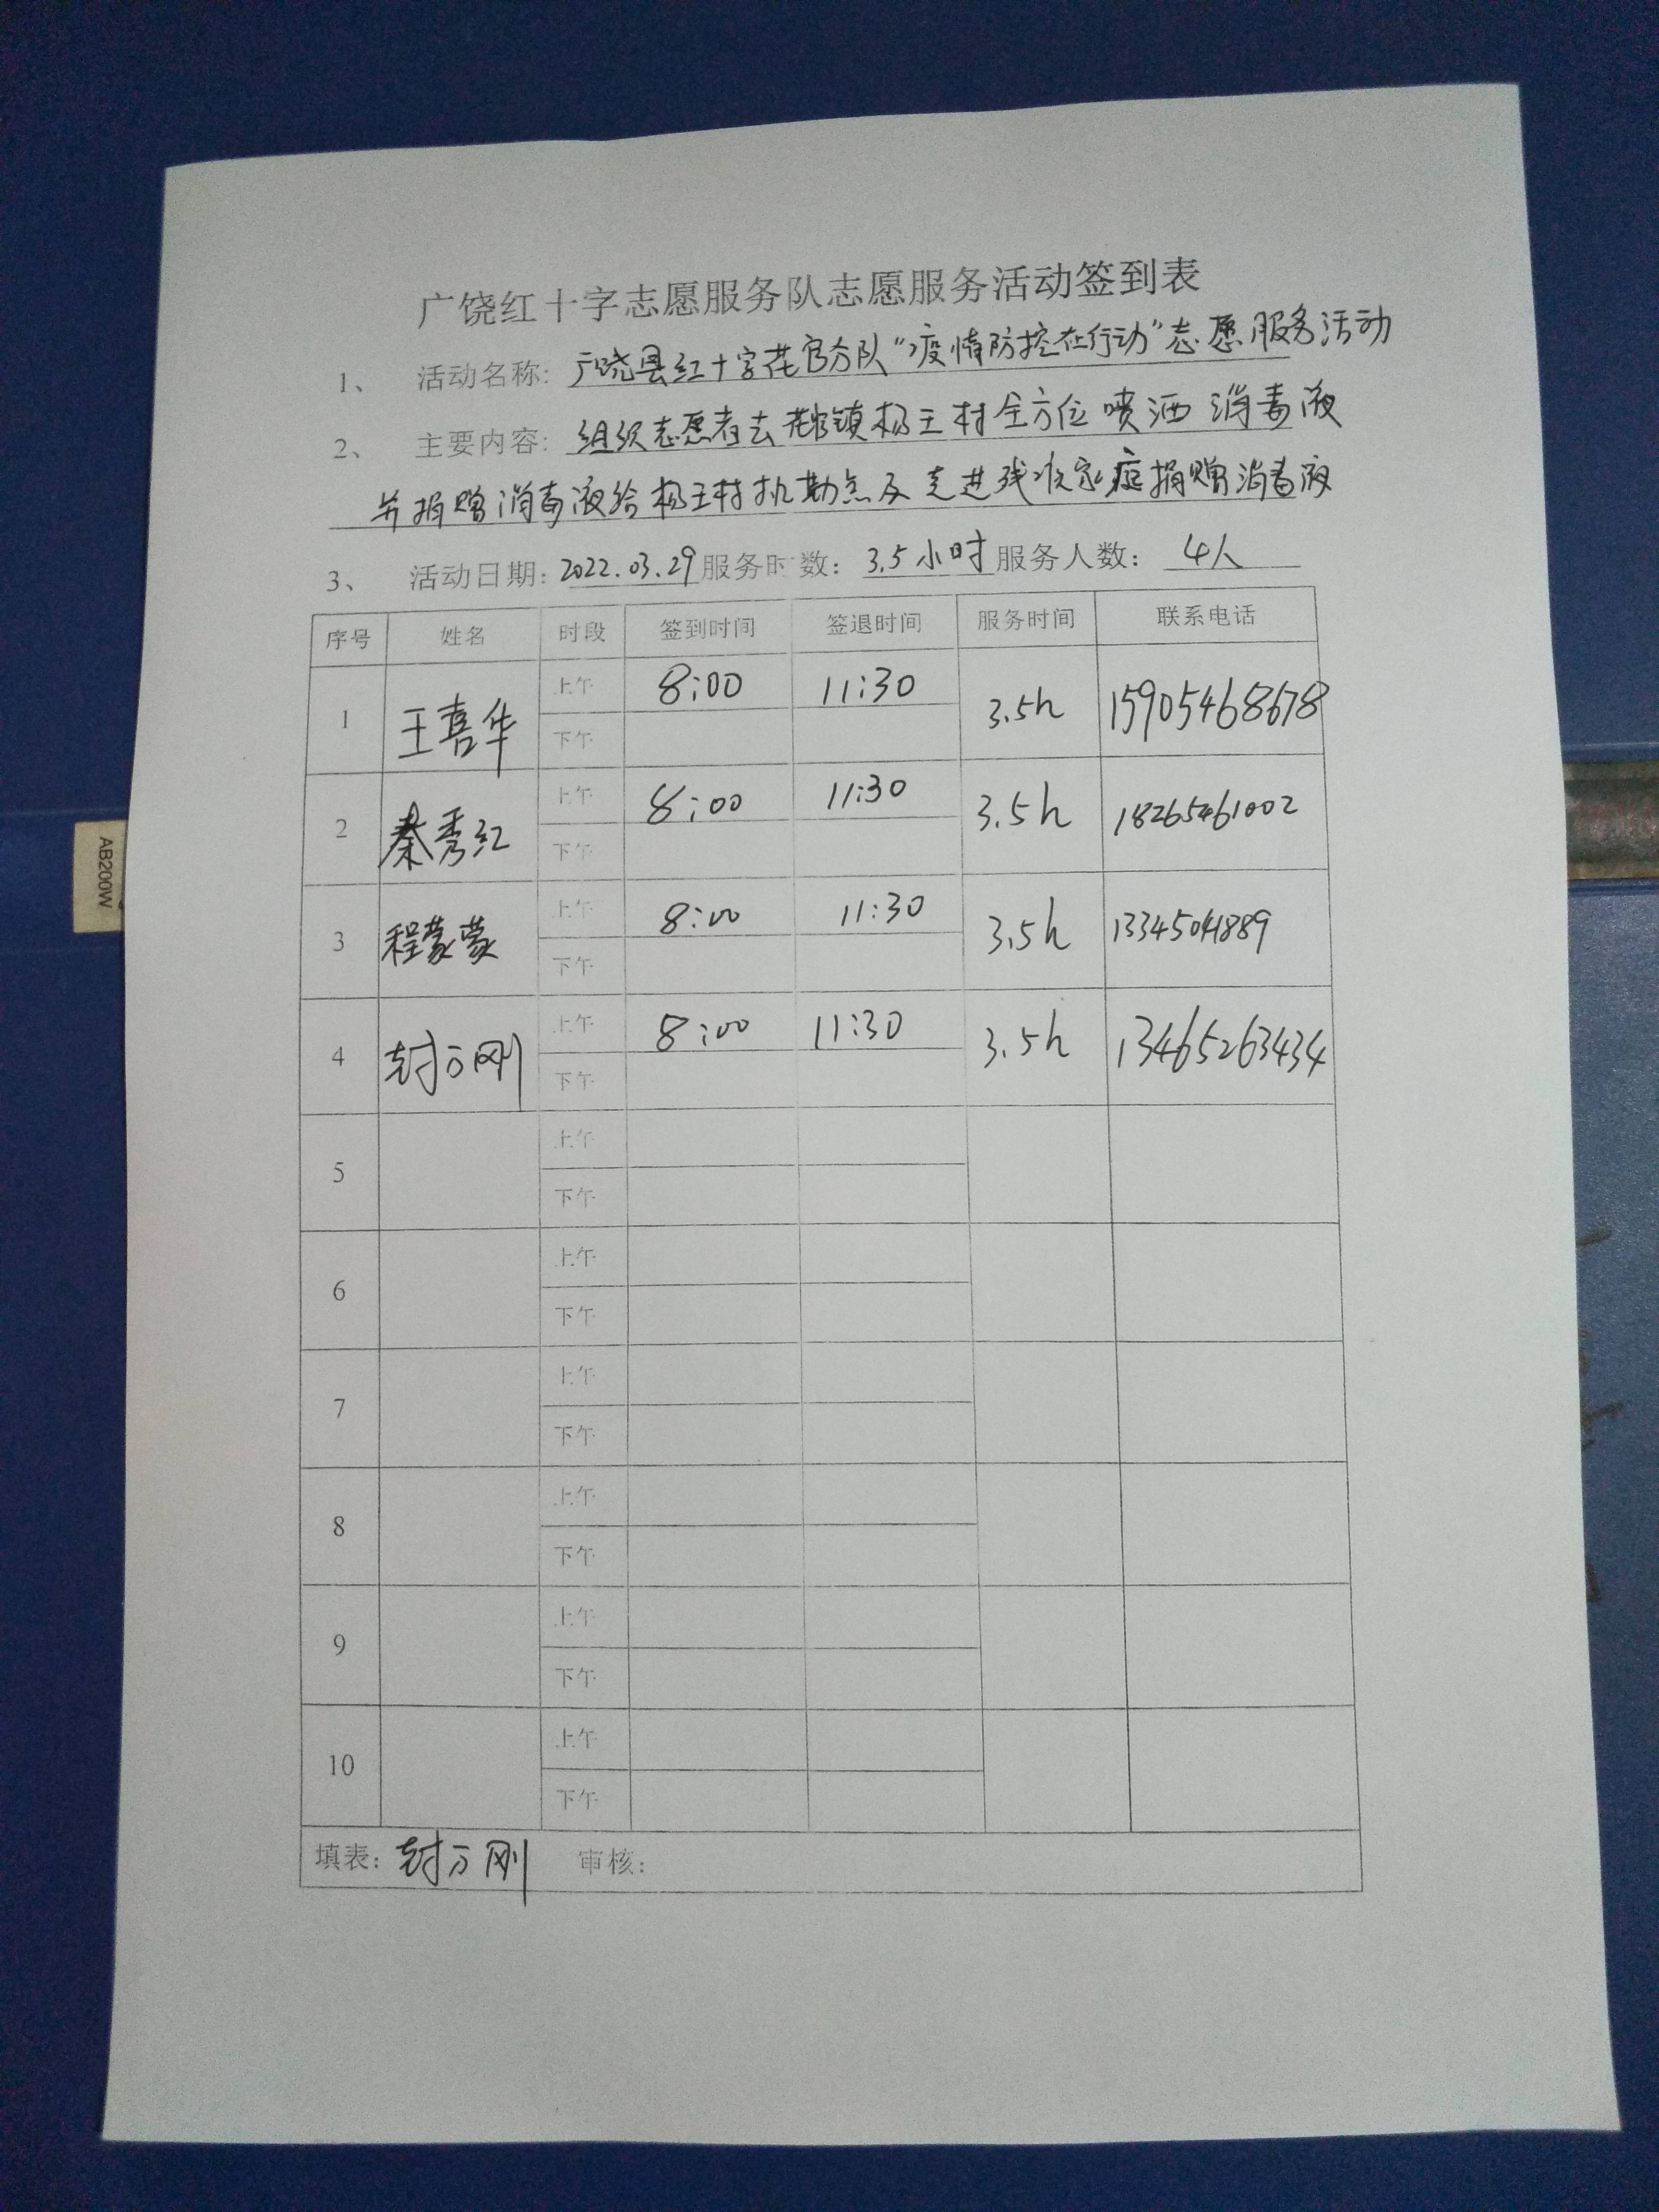 广饶红十字志愿服务队志愿服务活动签到表
1、 活动名称: 广饶县红十字花官分队“疫情防控在行动”志愿服务活动
2、 主要内容: 组织志愿者去花官镇杨王村全方位喷洒消毒液
并捐赠消毒液给杨王村执勤点及走进残疾家庭捐赠消毒液
3、 活动日期: 2022.03.29 服务时数: 3.5小时 服务人数: 4人
序号 姓名 时段 签到时间 签退时间 服务时间 联系电话
1 王喜华 上午 8:00 11:30 3.5h 15905468678
下午
2 秦秀红 上午 8:00 11:30 3.5h 18265461002
下午
3 程蒙蒙 上午 8:00 11:30 3.5h 13345041889
下午
4 封方刚 上午 8:00 11:30 3.5h 13465263434
下午
5 上午
下午
6 上午
下午
7 上午
下午
8 上午
下午
9 上午
下午
10 上午
下午
填表: 封方刚 审核:
AB200W